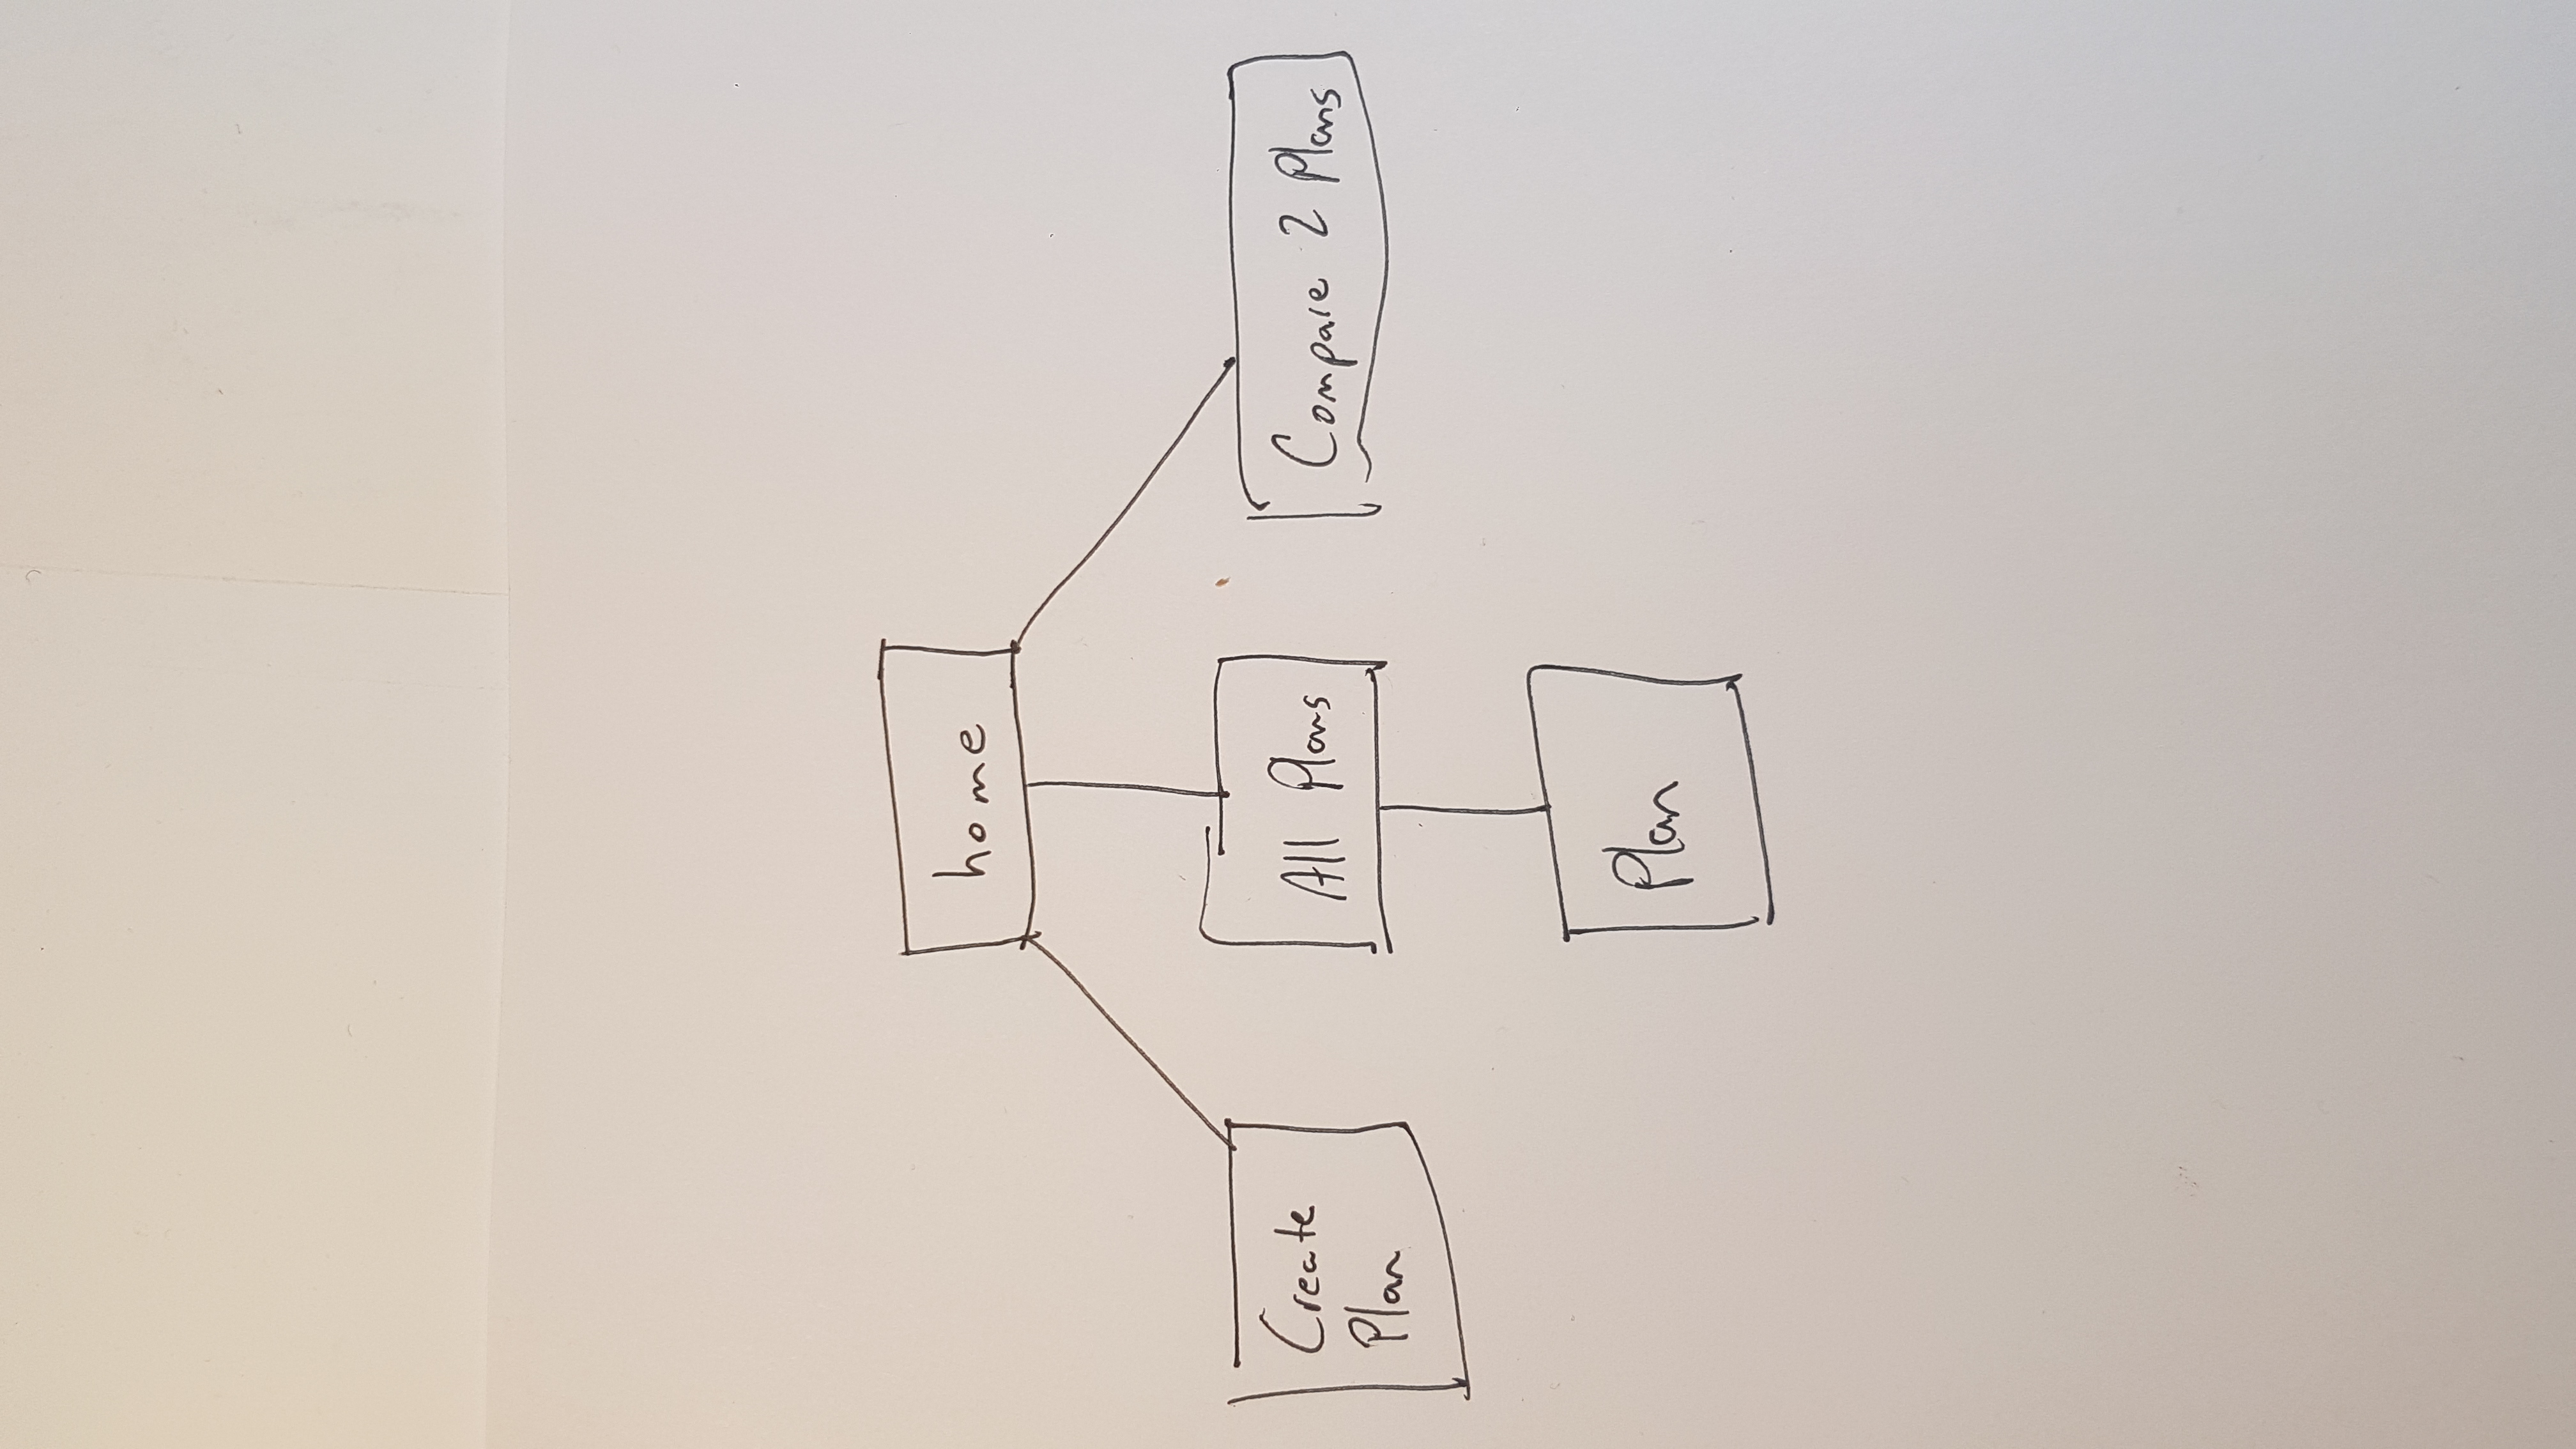 home
Create
Plan
All Plans
Compare 2 Plans
Plan